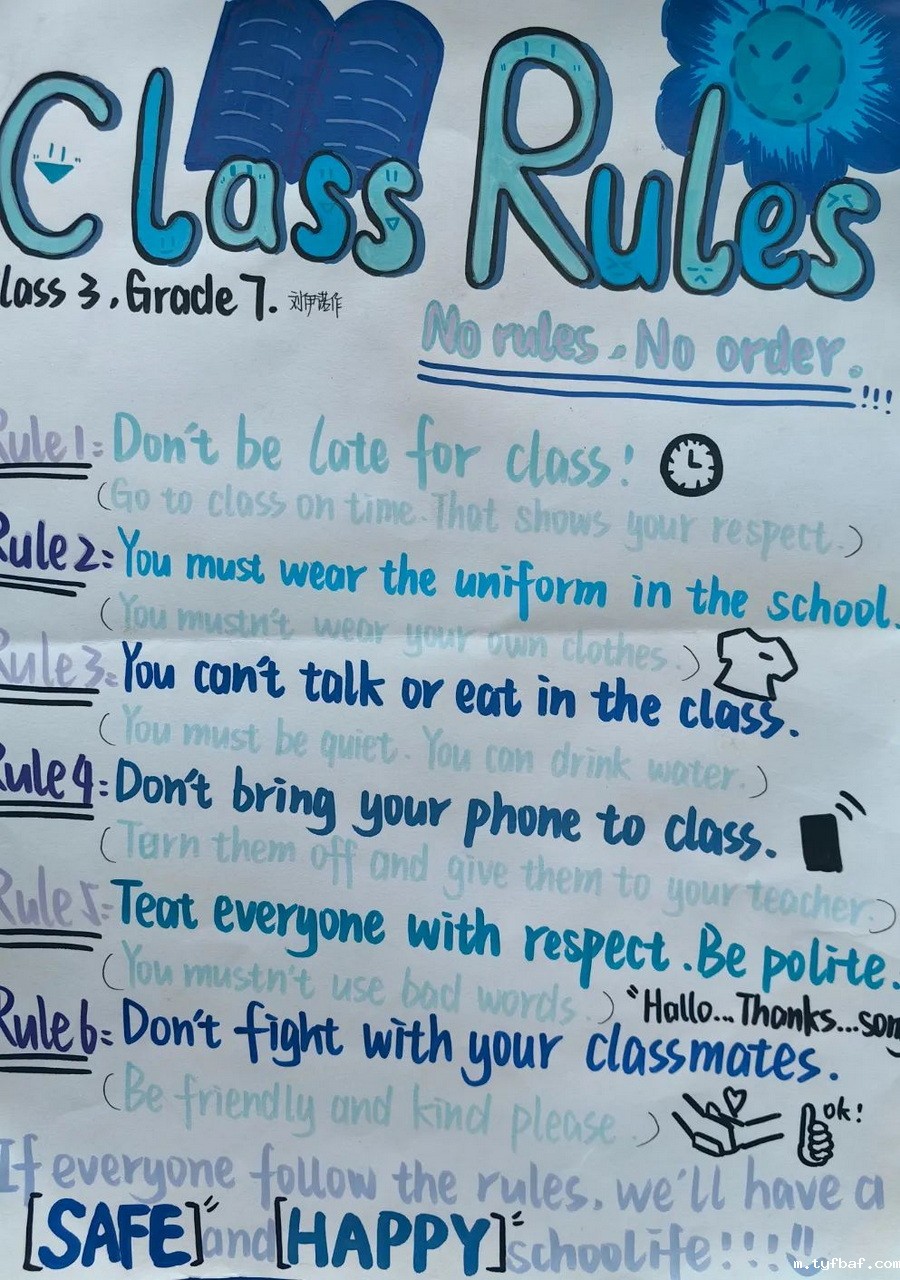 Class Rules
lass 3, Grade 7. 刘伊诺作
No rules, No order.!!!
Rule 1: Don't be late for class!
(Go to class on time. That shows your respect.)
Rule 2: You must wear the uniform in the school.
(You mustn't wear your own clothes.)
Rule 3: You can't talk or eat in the class.
(You must be quiet. You can drink water.)
Rule 4: Don't bring your phone to class.
(Turn them off and give them to your teacher.)
Rule 5: Teat everyone with respect. Be polite.
(You mustn't use bad words.) "Hallo...Thanks...som
Rule 6: Don't fight with your classmates.
(Be friendly and kind please.) ok!
If everyone follow the rules, we'll have a
[SAFE]" and [HAPPY]" schoolife!!!!!
m.tyfbaf.com